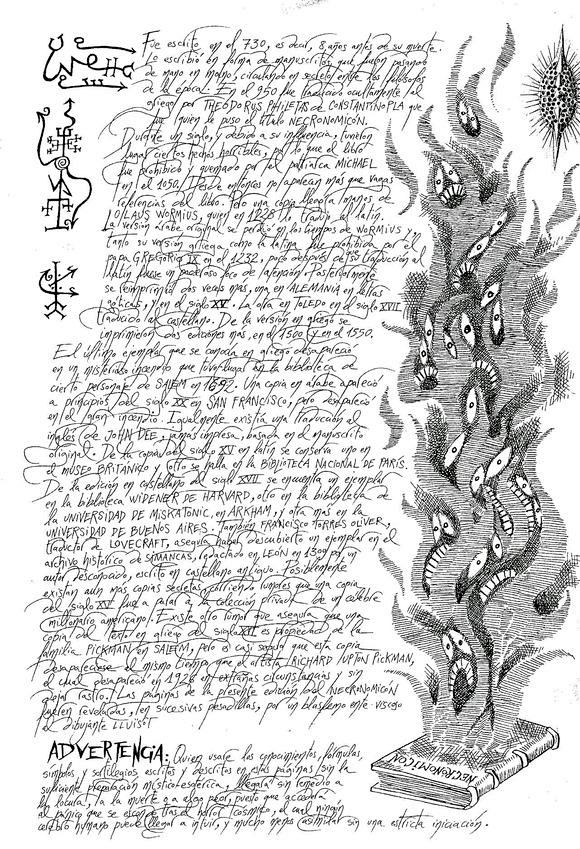 Fue escrito en el 730, es decir, 8 años antes de su muerte.
Lo escribió en forma de manuscritos que fueron pasando
de mano en mano, circulando en secreto entre los filósofos
de la época. En el 950 fue traducido ocultamente al
griego por THEODORUS PHILETAS de CONSTANTINOPLA que
fue quien le puso el título NECRONOMICON.
Durante un siglo, y debido a su influencia, tuvieron
lugar ciertos hechos horribles, por lo que el libro
fue prohibido y quemado por el patriarca MICHAEL
en el 1050. Desde entonces no aparecen mas que vagas
referencias del libro. Pero una copia llegó a manos de
OLAUS WORMIUS, quien en 1228 lo tradujo al latín.
La versión árabe original se perdió en los tiempos de WORMIUS y
tanto su versión griega como la latina fue prohibida por el
papa GREGORIO IX en el 1232, poco después de que su traducción al
latín fuese un poderoso foco de atención. Posteriormente
se reimprimió dos veces mas, una en ALEMANIA en letras
góticas, y en el siglo XV. La otra en TOLEDO en el siglo XVII
traducido al castellano. De la versión en griego se
imprimieron dos ediciones mas, en el 1500 y en el 1550.
El último ejemplar que se conocía en griego desapareció
en un misterioso incendio que tuvo lugar en la biblioteca de
cierto personaje de SALEM en 1692. Una copia en árabe apareció
a principios del siglo XX en SAN FRANCISCO, pero desapareció
en el gran incendio. Igualmente existía una traducción al
inglés de JOHN DEE, jamás impresa, basada en el manuscrito
original. De la copia del siglo XV en latín se conserva uno en
el MUSEO BRITANICO y otro se halla en la BIBLIOTECA NACIONAL DE PARIS.
De la edición en castellano del siglo XVII se encuentra un ejemplar
en la biblioteca WIDENER DE HARVARD, otro en la biblioteca de
la UNIVERSIDAD DE MISKATONIC, en ARKHAM, y otra mas en la
UNIVERSIDAD DE BUENOS AIRES. También FRANCISCO TORRES OLIVER,
traductor de LOVECRAFT, asegura haber descubierto un ejemplar en el
archivo histórico de SIMANCAS, redactado en LEÓN en 1300 por un
autor desconocido, escrito en castellano antiguo. Posiblemente
existan aún mas copias secretas, corriendo rumores que una copia
del siglo XV fue a parar a la colección privada de un célebre
millonario americano. Existe otro rumor que asegura que una
copia del texto en griego del siglo XVI es propiedad de la
familia PICKMAN en SALEM, pero es casi seguro que esta copia
desapareciese al mismo tiempo que el artista RICHARD UPTON PICKMAN,
el cual desapareció en 1926 en extrañas circunstancias y sin
dejar rastro. Las páginas de la presente edición del NECRONOMICÓN
fueron reveladas, en sucesivas pesadillas, por un blasfemo ente viscoso
al dibujante LLUÏSOT
ADVERTENCIA: Quien usase los conocimientos, fórmulas,
símbolos, y sortilegios escritos y descritos en estas páginas sin la
suficiente preparación místico-esotérica, llegará sin remedio a
la locura, a la muerte o a algo peor, puesto que accederá
al pánico que se esconde tras el horror cósmico, el cual ningún
cerebro humano puede llegar a intuir, y mucho menos asimilar sin una estricta iniciación.
NECRONOMICON